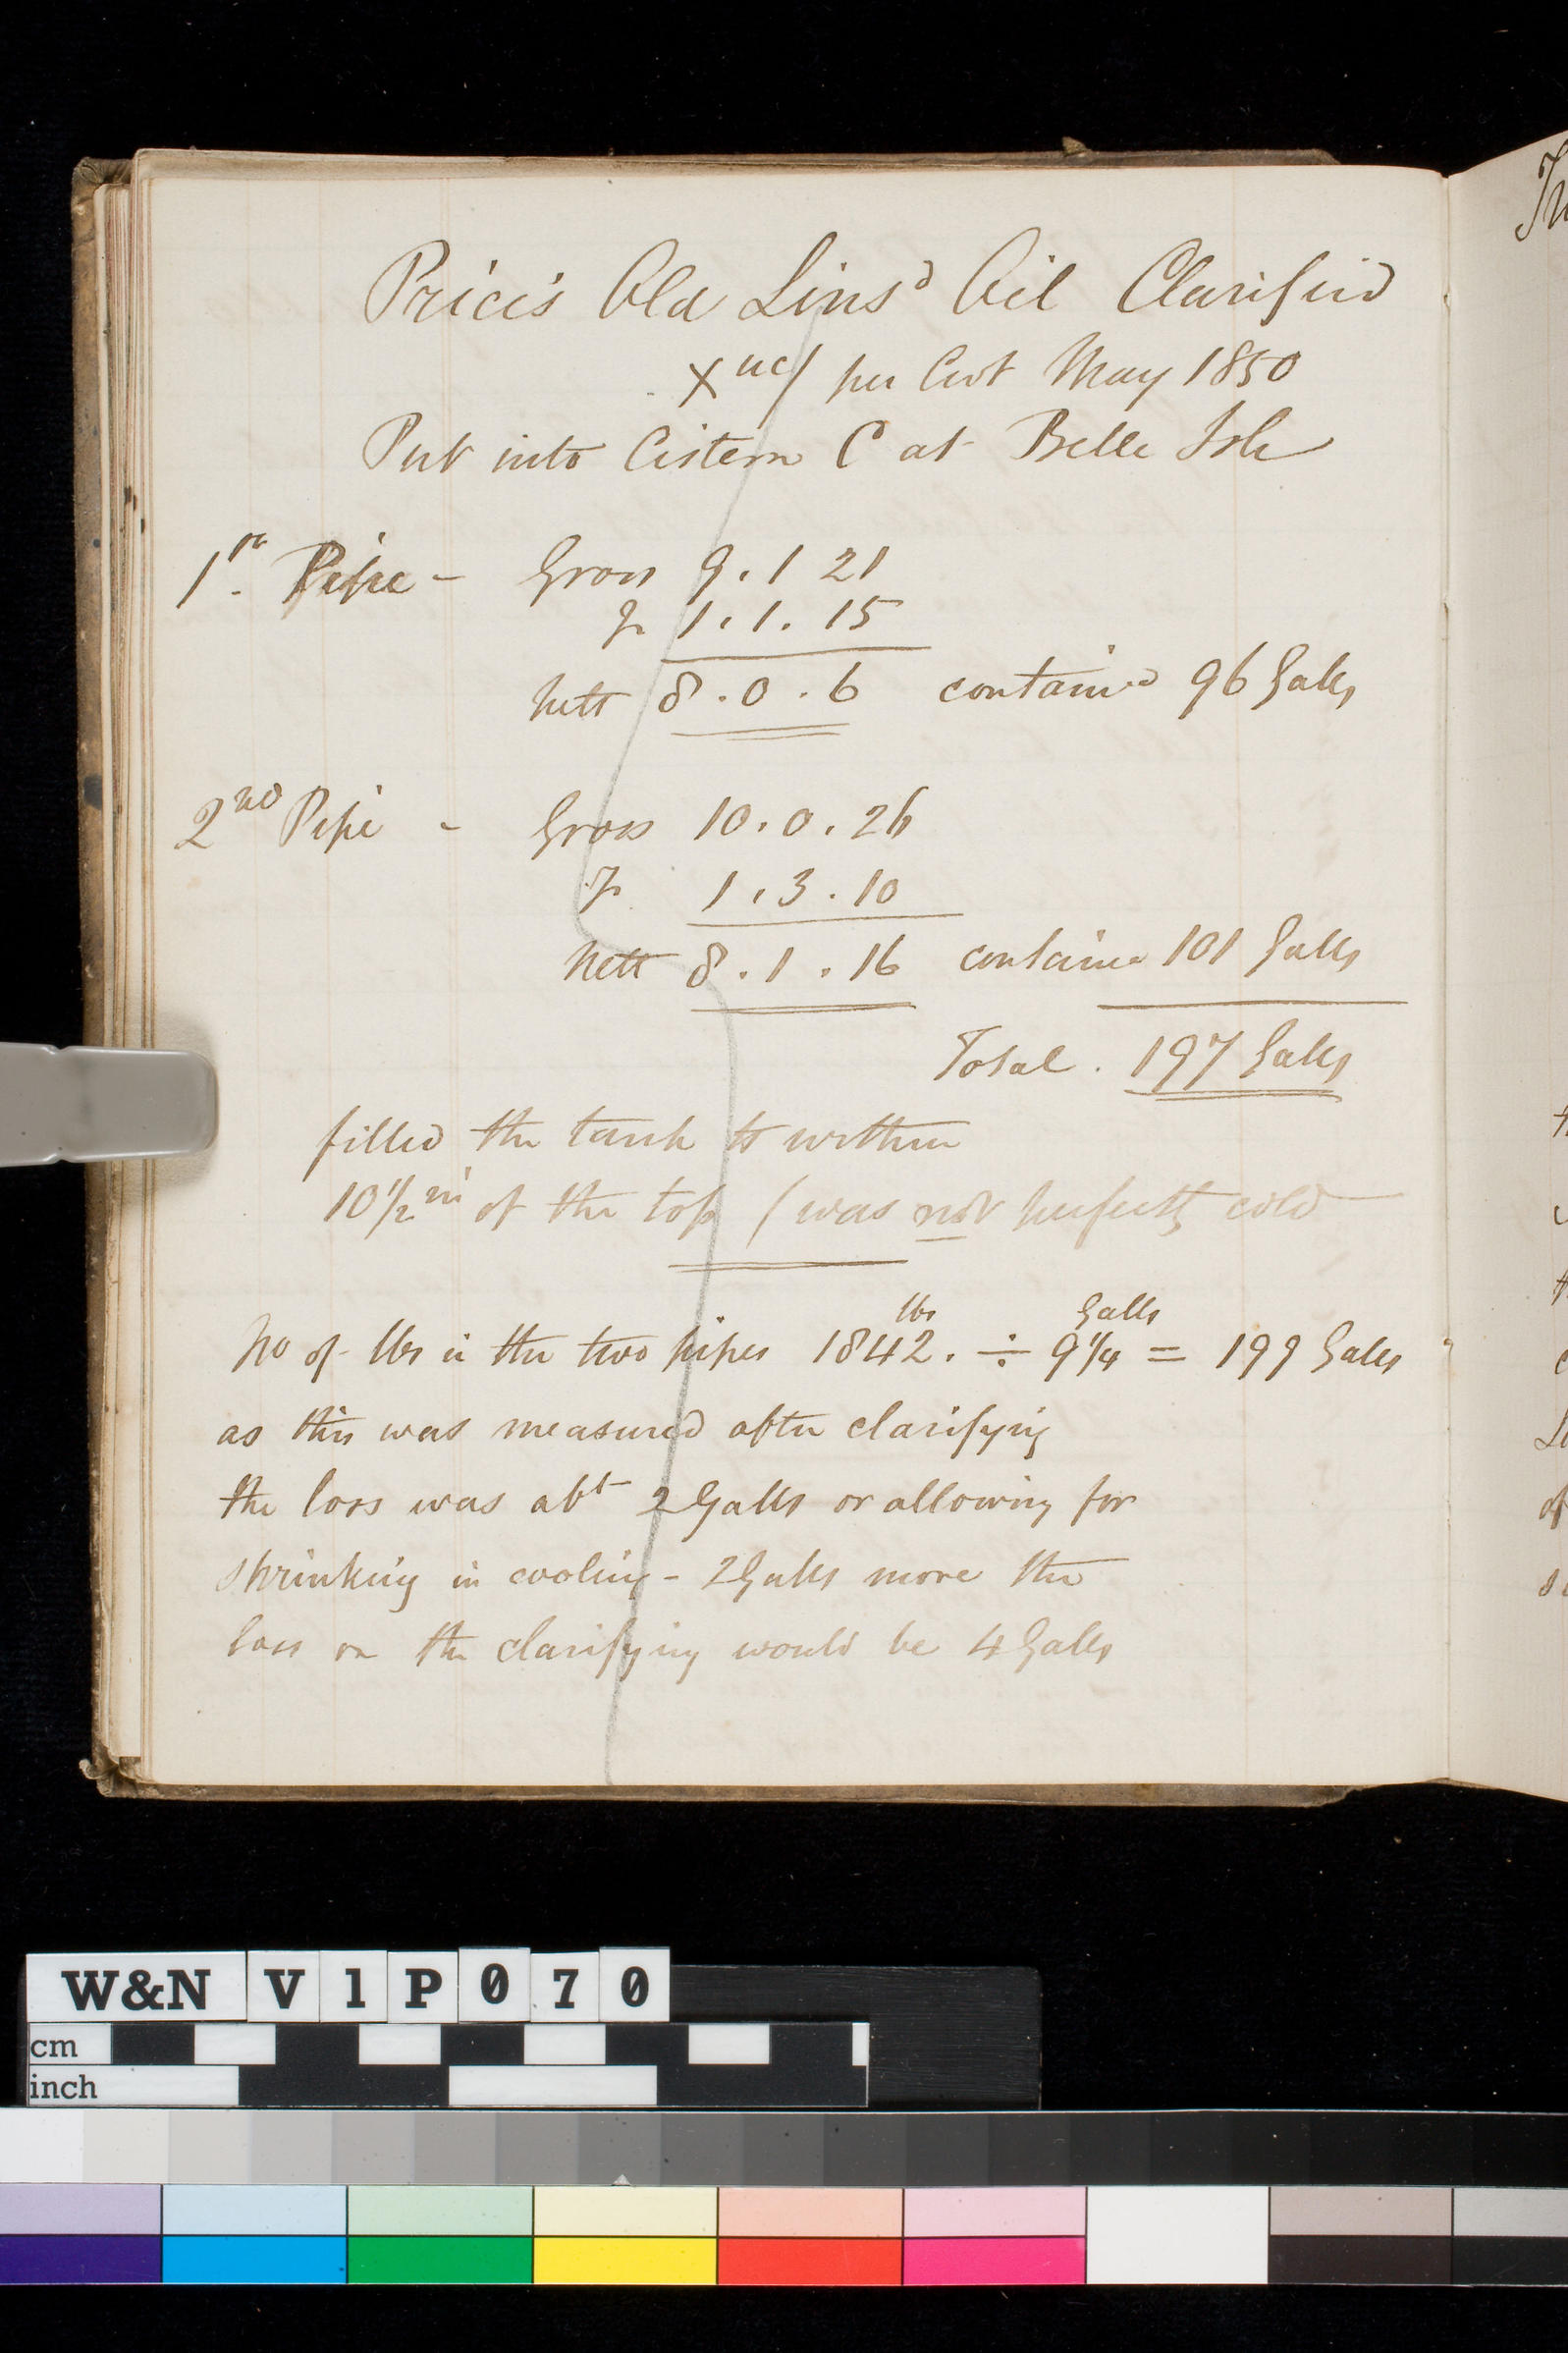 Price's Old Lins^d Oil Clarified
X uc/ per Cwt May 1850
Put into Cistern C at Belle Isle
1st Pipe - Gross 9.1 21
Tr 1.1.15
Nett 8.0.6 contained 96 Galls
2nd Pipe - Gross 10.0.26
Tr 1.3.10
Nett 8.1.16 contained 101 Galls
Total. 197 Galls
filled the tank to within
10 1/2 in of the top (was not perfectly cold
No of lbs in the two pipes 1842 lbs. ÷ 9 1/4 Galls = 199 Galls
as this was measured after clarifying
the loss was abt 2 Galls or allowing for
shrinking in cooling - 2 Galls more the
loss on the clarifying would be 4 Galls
W&N V1P070
cm
inch